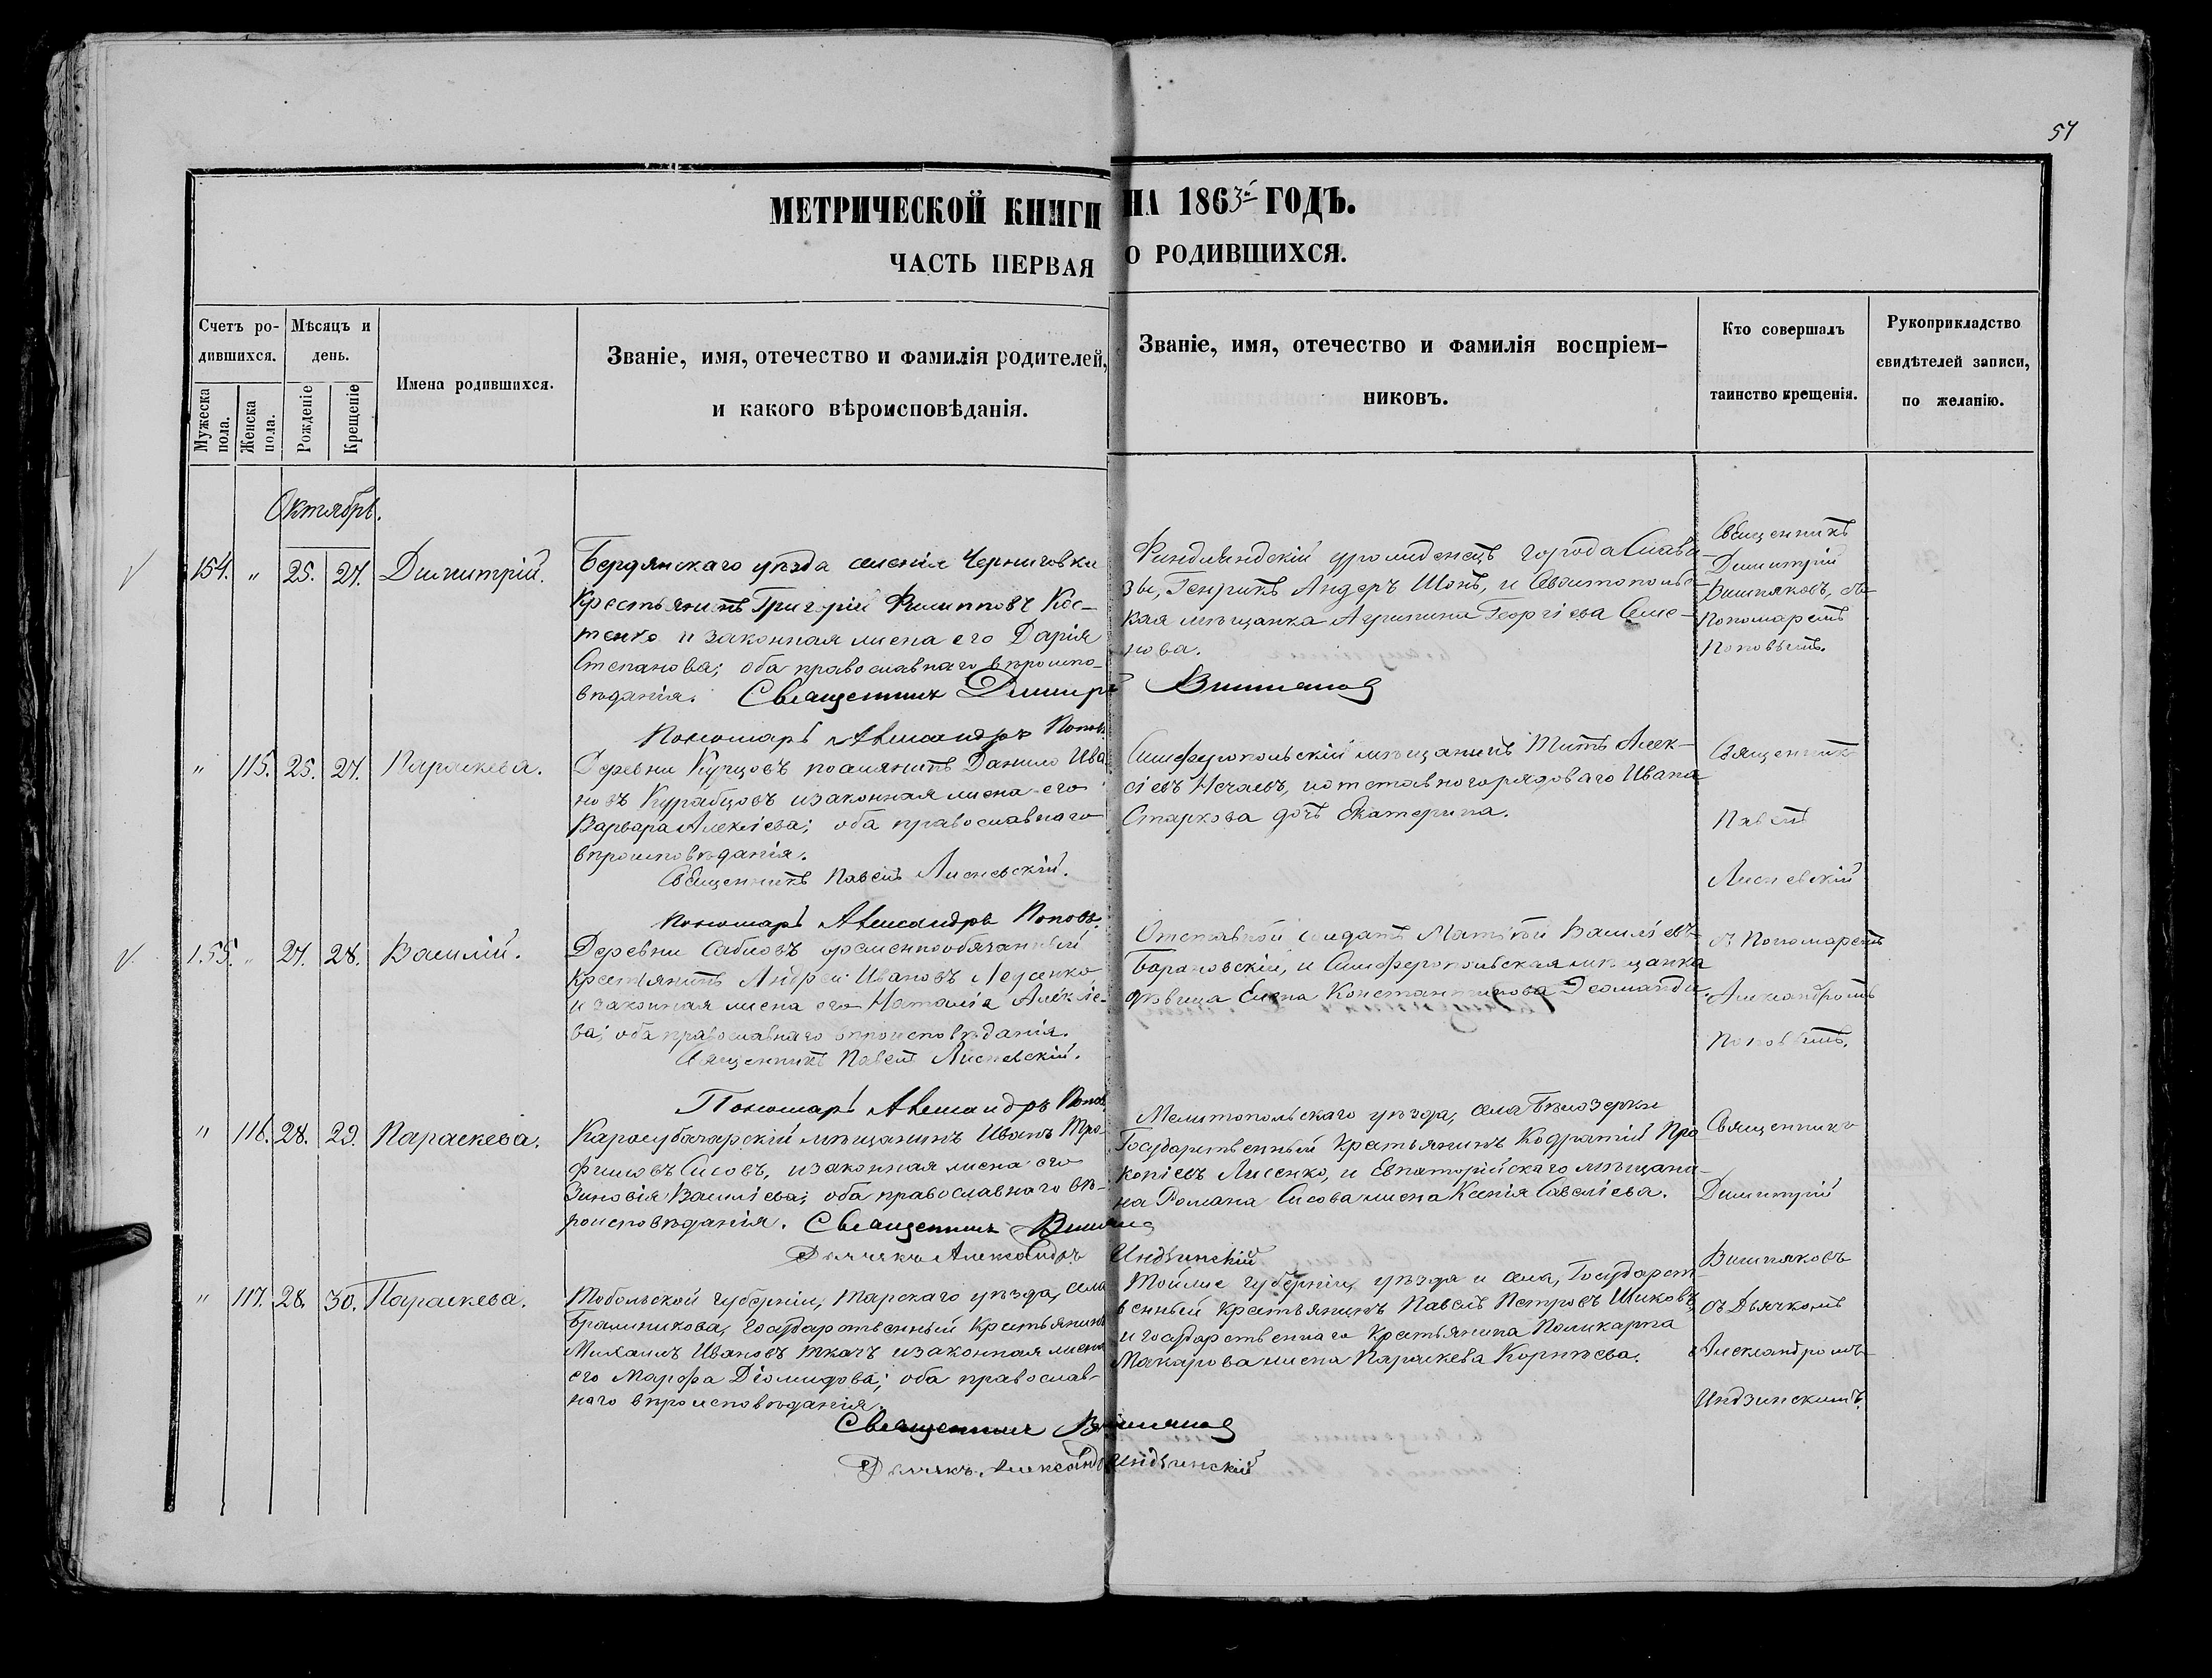 57
МЕТРИЧЕСКОЙ КНИГИ НА 1863й ГОДЪ.
ЧАСТЬ ПЕРВАЯ О РОДИВШИХСЯ.
Счетъ ро-
дившихся.
Мужеска пола.
Женска пола.
Мѣсяцъ и
день.
Рожденіе
Крещеніе
Имена родившихся.
Званіе, имя, отечество и фамилія родителей,
и какого вѣроисповѣданія.
Званіе, имя, отечество и фамилія воспріем-
никовъ.
Кто совершалъ
таинство крещенія.
Рукоприкладство
свидѣтелей записи,
по желанію.
Октябрь.
154. " 25. 27. Димитрій.
Бердянскаго уѣзда селенія Черниговки
крестьянинъ Григорій Филипповъ Кос-
тенко и законная жена его Дарія
Степанова; оба православнаго вѣроиспо-
вѣданія. Священникъ Димитрій Вишняковъ
Пономарь Александръ Поповъ.
Финдляндскій уроженецъ города
Генрикъ Андеръ Шонъ, и Севастопольс-
кая мѣщанка Агрипина Георгіева Семе-
нова.
Священникъ
Димитрій
Вишняковъ, съ
Пономаремъ
Поповымъ.
" 115. 25. 27. Параскева.
Деревни Курцовъ поселянинъ Данило Ива
новъ Курабцовъ и законная жена его
Варвара Алексіева; оба православнаго
вѣроисповѣданія.
Священникъ Павелъ Лисневскій.
Пономарь Александръ Поповъ.
Симферопольскій мѣщанинъ Титъ Алек-
сіевъ Нечаевъ, и отставного рядоваго Ивана
Старкова дочь Екатерина.
Священникъ
Павелъ
Лисневскій
155. " 27. 28. Василій.
Деревни Сабловъ временнообязанный
крестьянинъ Андрей Ивановъ Леусенко
и законная жена его Наталія Алексіе-
ва; оба православнаго вѣроисповѣданія.
Священникъ Павелъ Лисневскій.
Пономарь Александръ Поповъ.
Отставной солдатъ Матвѣй Василіевъ
Барановскій, и Симферопольская мѣщанка
дѣвица Елена Константинова
съ Пономаремъ
Александромъ
Поповымъ.
" 116. 28. 29. Параскева.
Карасубазарскій мѣщанинъ Иванъ Тро-
фимовъ Сисовъ, и законная жена его
Зиновія Василіева; оба православнаго вѣ-
роисповѣданія. Священникъ Вишняковъ
Дьячекъ Александръ Индзинскій
Мелитопольскаго уѣзда, села Бѣлозерки
Государственный крестьянинъ Кодратій Про
копіевъ Лисенко, и Евпаторійскаго мѣщани-
на Романа Сисова жена Ксенія Савеліева.
Священникъ
Димитрій
Вишняковъ
съ Дьячкомъ
Александромъ
Индзинскимъ.
" 117. 28. 30. Параскева.
Тобольской губерніи, Тарскаго уѣзда, села
Государственный крестьянинъ
Михаилъ Ивановъ Ткачъ и законная жена
его Марфа Діомидова; оба православ-
наго вѣроисповѣданія.
Священникъ Вишняковъ
Дьячекъ Александръ Индзинскій
Той же губерніи, уѣзда и села, Государст-
венный крестьянинъ Павелъ Петровъ Шиковъ,
и государственнаго крестьянина Поликарпа
Макарова жена Параскева Корнѣева.